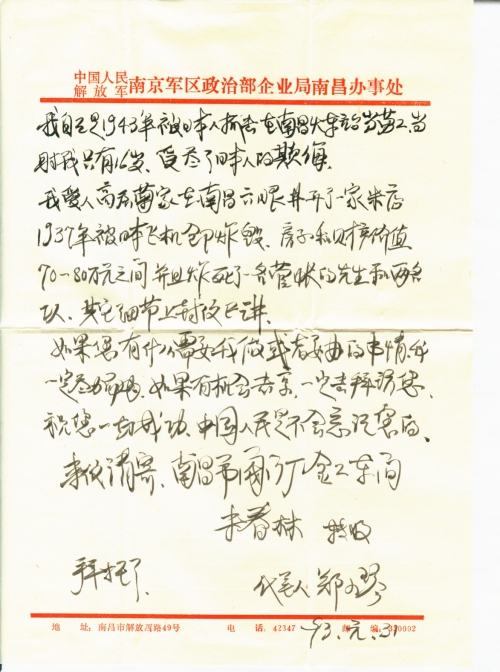 中国人民解放军南京军区政治部企业局南昌办事处
我自己是1943年被日本人抓去在南昌火车站当劳工,当
时我只有16岁,受尽了日本人的欺侮。
我爱人高  家在南昌六眼井开了一家米店
1937年被日本飞机全部炸毁,房子和财产价值
70-80万元之间并且炸死了一名管帐的先生和两名
以,其它细节上封信已讲。
如果您有什么需要我做或者要办的事情我
一定尽力而为,如果有机会去京,一定去拜访您,
祝您一切成功,中国人民是不会忘记您的、
来信请寄、南昌市  厂金工车间
春林 转收
拜托了
代笔人 郑
地 址:南昌市解放西路49号 电 话:42347 邮 编:330002
93.元.31